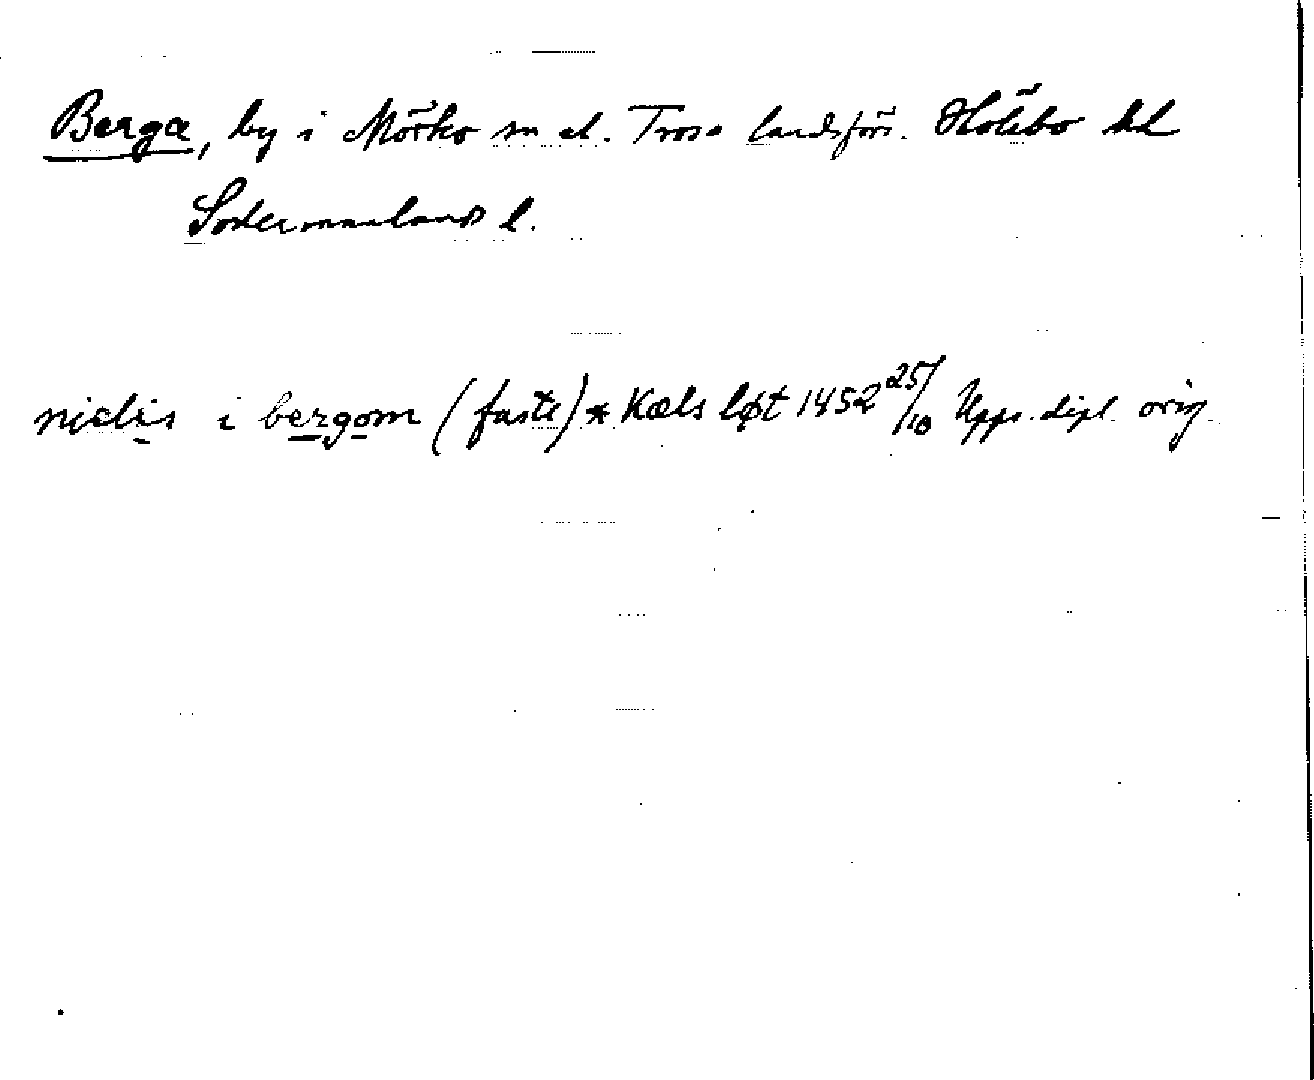 Berga, by i Mörkö sn el. Trosa landsförs. Hölebo hd
Södermanlands l.
nielis i bergom (faste) * Kæls løt 1452 25/10 Upps. dipl. orig.